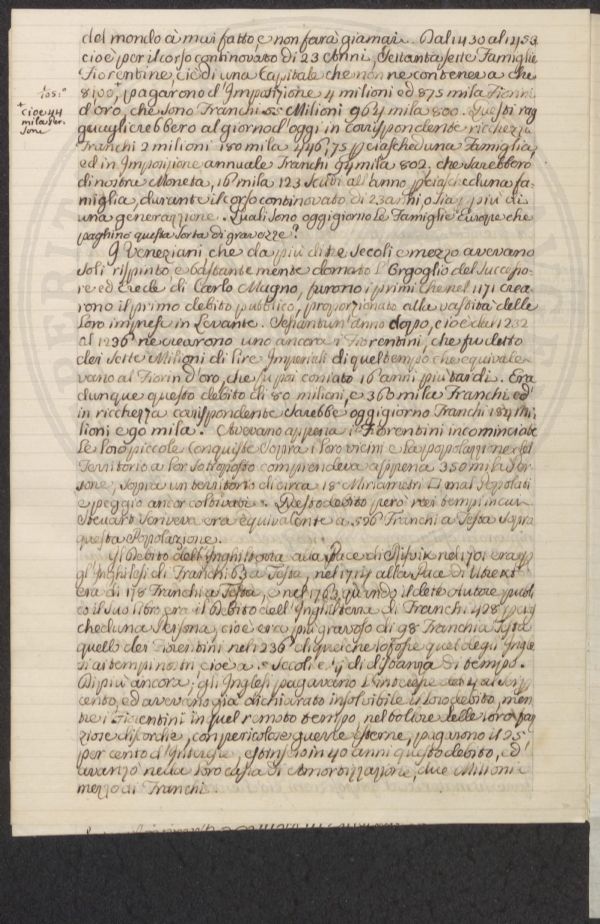 del mondo à mai fatto, e non farà giamai. Dal 1430 al 1453
cioè per il corso continovato di 23 Anni, Settantasette Famiglie
Fiorentine, cioè di una Capitale che non ne contenea che
8100+, pagarono d'Imposizione 4 milioni ed 875 mila Fiorini
+ cioè 44
mila Per-
sone
d'oro, che sono Franchi 55 Milioni 964 mila 800. Questi rag
guaglierebbero al giorno d'oggi in corrispondente ricchezza
Franchi 2 milioni 180 mila 446,75 p ciascheduna Famiglia,
ed in Imposizione annuale Franchi 94 mila 802. che sarebbero
di nostra Moneta, 16 mila 123 Scudi all'anno p ciascheduna fa-
miglia, durante il corso continovato di 23 anni, o sia p più di
una generazione. Quali sono oggigiorno le Famiglie Europe che
paghino questa sorta di gravezze?
I Veneziani, che da più di tre secoli e mezzo avevano
soli rispinto e bastantemente domato l'Orgoglio del Successo-
re ed Erede di Carlo Magno, furono i primi che nel 1171 crea-
rono il primo debito pubblico, proporzionato alla vastità delle
loro imprese in Levante. Sessantun'anno dopo, cioè dal 1232
al 1236 ne crearono uno ancora i Fiorentini, che fu detto
dei Sette Milioni di lire Imperiali di quel tempo che equivale-
vano al Fiorin d'oro, che fu poi coniato 16 anni più tardi. Era
dunque questo debito di 80 milioni, e 360 mila Franchi ed
in ricchezza corrispondente sarebbe oggigiorno Franchi 184 Mi-
lioni e 90 mila. Avevano appena i Fiorentini incominciate
le loro piccole Conquiste sopra i loro vicini e la popolazione del
Territorio a lor sottoposto comprendeva appena 350 mila Per-
sone, sopra un territorio di circa 18 Miriametri mal Popolati
e peggio ancor coltivati. Questo debito però nei tempi in cui
Steuart scriveva era equivalente a 526 Franchi a Testa sopra
questa Popolazione.
Il Debito dell'Inghilterra alla Pace di nel 1701 era p
gl'Inghilesi di Franchi 63 a Testa, nel 1714 alla Pace di
era di 118 Franchi a Testa, e nel 1763 quando il detto Autore pubbli
cò il suo libro era il Debito dell'Inghilterra di Franchi 428 p cia
cheduna Persona, cioè era più gravoso di 98 Franchi a Testa
quello dei Fiorentini nel 1236 di quel che lo fosse quel degli Ingle
si ai tempi nostri cioè a 5 secoli e ½ di distanza di tempo.
Di più ancora; gli Inglesi pagavano l'interesse del 4 al 5 per
cento, ed avevano già dichiarato insolvibile il loro debito, men
tre i Fiorentini in quel remoto tempo, nel bollore delle loro fa
ziose discordie, con pericolose guerre esterne, pagarono il 25
per cento d'Interesse, estinsero in 40 anni questo debito, ed
avanzò nella loro cassa di Amortizzazione, due Milioni e
mezzo di Franchi.